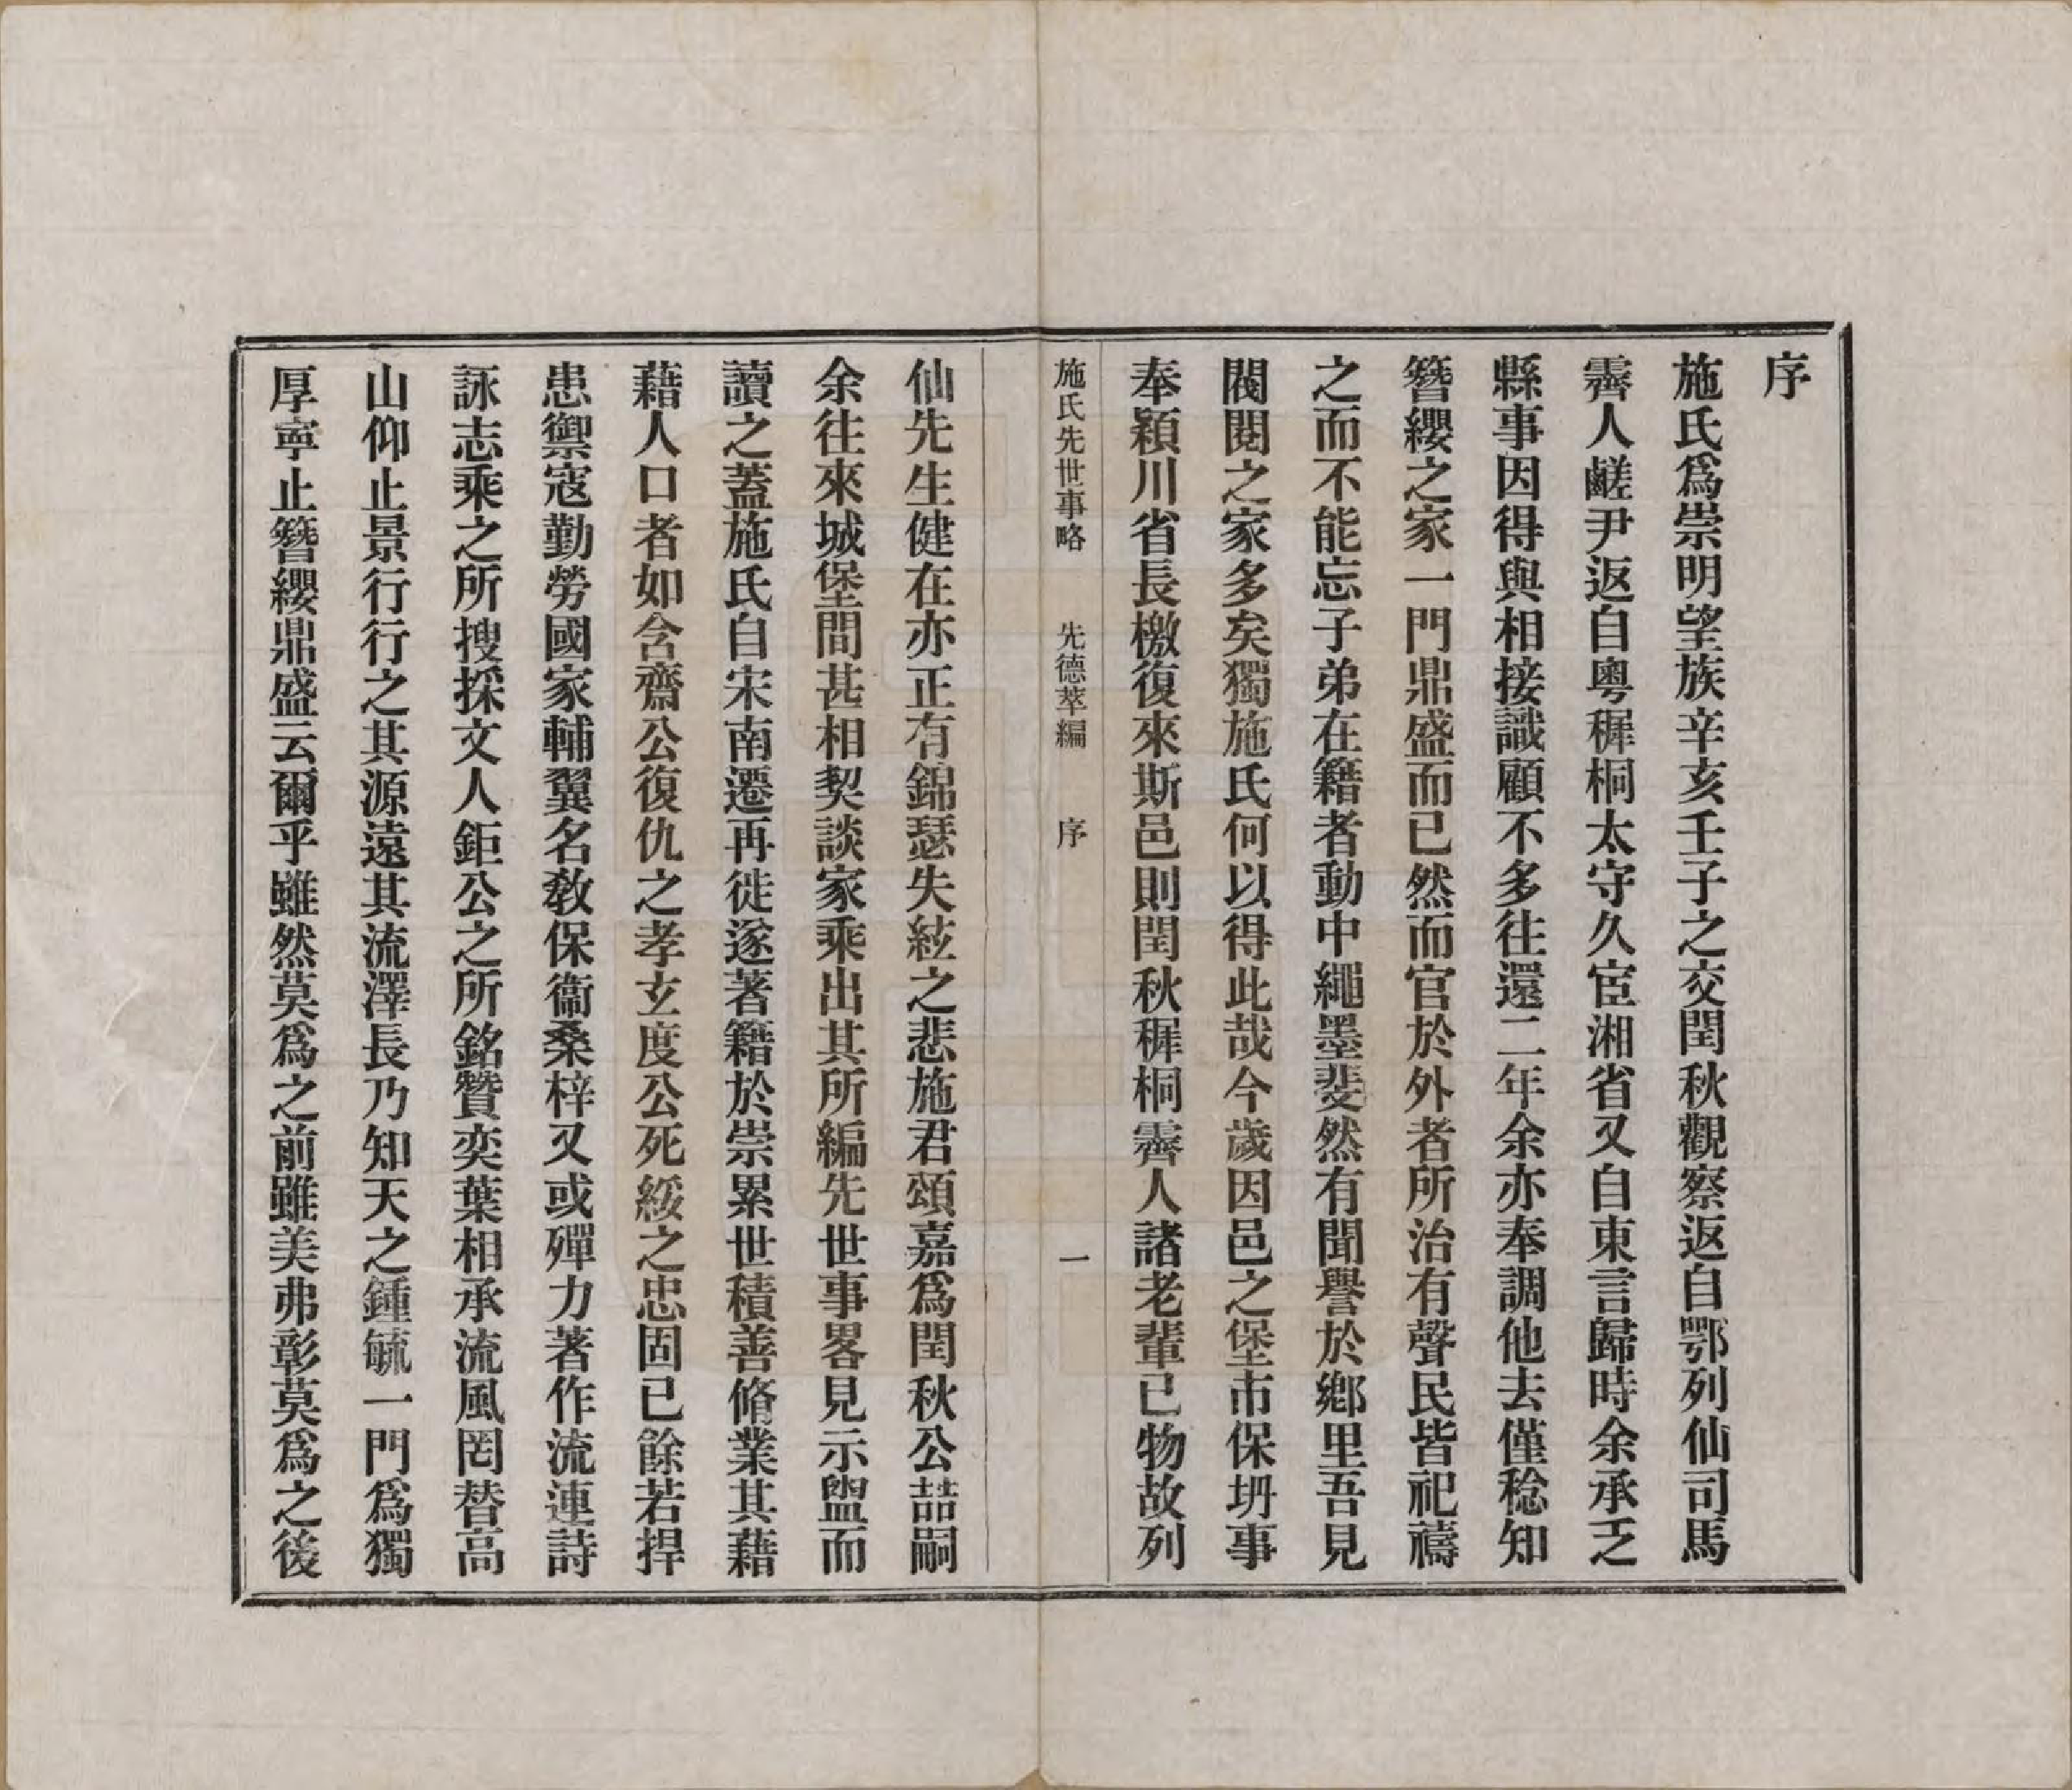 序
施氏爲崇明望族辛亥壬子之交閏秋觀察返自鄂列仙司馬
霽人鹺尹返自粵穉桐太守久宦湘省又自東言歸時余承乏
縣事因得與相接識顧不多往還二年余亦奉調他去僅稔知
簪纓之家一門鼎盛而已然而官於外者所治有聲民皆祀禱
之而不能忘子弟在籍者動中繩墨斐然有聞譽於鄉里吾見
閥閱之家多矣獨施氏何以得此哉今歲因邑之堡市保坍事
奉穎川省長檄復來斯邑則閏秋穉桐霽人諸老輩已物故列
施氏先世事略 先德萃編 序 一
仙先生健在亦正有錦瑟失絃之悲施君頌嘉爲閏秋公喆嗣
余往來城堡間甚相契談家乘出其所編先世事畧見示盥而
讀之蓋施氏自宋南遷再徙遂著籍於崇累世積善脩業其藉
藉人口者如含齋公復仇之孝玄度公死綏之忠固已餘若捍
患禦寇勤勞國家輔翼名敎保衞桑梓又或殫力著作流連詩
詠志乘之所搜採文人鉅公之所銘贊奕葉相承流風罔替高
山仰止景行行之其源遠其流澤長乃知天之鍾毓一門爲獨
厚寧止簪纓鼎盛云爾乎雖然莫爲之前雖美弗彰莫爲之後